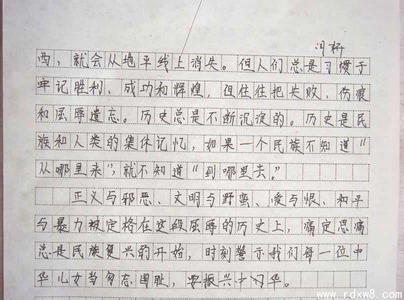 西，就会从地平线上消失。但人们总是习惯于
牢记胜利、成功和辉煌，但往往把失败、伤痕
和屈辱遗忘。历史总是不断沉淀的。历史是民
族和人类的集体记忆，如果一个民族不知道“
从哪里来”，就不知道“到哪里去。”
正义与邪恶、文明与野蛮、爱与恨、和平
与暴力被定格在这段屈辱的历史上，痛定思痛
总是民族复兴的开始，时刻警示我们每一位中
华儿女当勿忘国耻，要振兴中华。
www.rdxw8.com